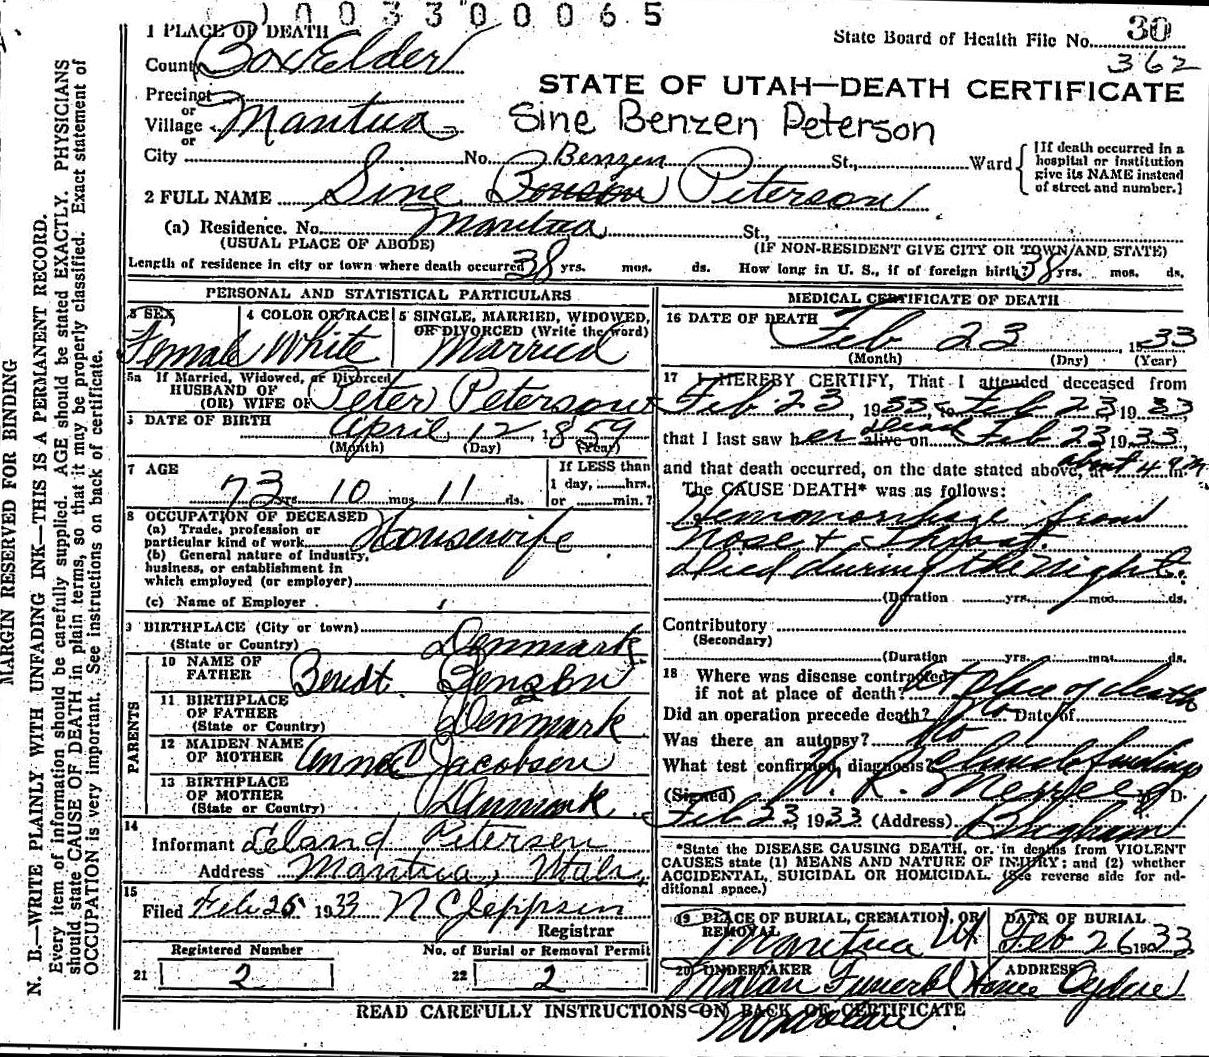 1003300065
1 PLACE OF DEATH
State Board of Health File No. 30
362
County Box Elder
STATE OF UTAH—DEATH CERTIFICATE
Precinct
or
Village Mantua
Sine Benzen Peterson
or
City No. St., Ward
[If death occurred in a hospital or institution give its NAME instead of street and number.]
Benzen
2 FULL NAME Sine Bonson Peterson
(a) Residence. No. Mantua St.,
(USUAL PLACE OF ABODE) (IF NON-RESIDENT GIVE CITY OR TOWN AND STATE)
Length of residence in city or town where death occurred 38 yrs. mos. ds. How long in U. S., if of foreign birth? 38 yrs. mos. ds.
PERSONAL AND STATISTICAL PARTICULARS
3 SEX
Female
4 COLOR OR RACE
White
5 SINGLE, MARRIED, WIDOWED,
OR DIVORCED (Write the word)
Married
5a If Married, Widowed, or Divorced
HUSBAND OF
(OR) WIFE OF Peter Peterson
6 DATE OF BIRTH April 12, 1859
(Month) (Day) (Year)
7 AGE
73 yrs. 10 mos. 11 ds.
If LESS than
1 day, hrs.
or min.?
8 OCCUPATION OF DECEASED
(a) Trade, profession or
particular kind of work Housewife
(b) General nature of industry,
business, or establishment in
which employed (or employer)
(c) Name of Employer
9 BIRTHPLACE (City or town)
(State or Country) Denmark
PARENTS
10 NAME OF
FATHER Bendt Benzen
11 BIRTHPLACE
OF FATHER
(State or Country) Denmark
12 MAIDEN NAME
OF MOTHER Anna Jacobsen
13 BIRTHPLACE
OF MOTHER
(State or Country) Denmark
14
Informant Leland Petersen
Address Mantua, Utah
15
Filed Feb 25 1933 N C Jeppsen
Registrar
Registered Number No. of Burial or Removal Permit
21 2 22 2
MEDICAL CERTIFICATE OF DEATH
16 DATE OF DEATH
Feb 23, 1933
(Month) (Day) (Year)
17 I HEREBY CERTIFY, That I attended deceased from
Feb 23, 1933, to Feb 23 1933
that I last saw her dead alive on Feb 23 1933,
and that death occurred, on the date stated above, at about 4 a m.
The CAUSE DEATH* was as follows:
Hemmorrhage from
Nose & Throat.
Died during the night.
(Duration yrs. mos. ds.
Contributory
(Secondary)
(Duration yrs. mos. ds.
18 Where was disease contracted
if not at place of death? At place of death
Did an operation precede death? No Date of
Was there an autopsy? No
What test confirmed diagnosis? findings
(Signed) W. R. M. D.
Feb 23, 1933 (Address) Brigham
*State the DISEASE CAUSING DEATH, or in deaths from VIOLENT
CAUSES state (1) MEANS AND NATURE OF INJURY; and (2) whether
ACCIDENTAL, SUICIDAL OR HOMICIDAL. (See reverse side for ad-
ditional space.)
19 PLACE OF BURIAL, CREMATION, OR
REMOVAL
Mantua Ut
DATE OF BURIAL
Feb 26 1933
20 UNDERTAKER ADDRESS
Malan Funeral Home Ogden
READ CAREFULLY INSTRUCTIONS ON BACK OF CERTIFICATE
MARGIN RESERVED FOR BINDING
N. B.—WRITE PLAINLY WITH UNFADING INK—THIS IS A PERMANENT RECORD.
Every item of information should be carefully supplied. AGE should be stated EXACTLY. PHYSICIANS
should state CAUSE OF DEATH in plain terms, so that it may be properly classified. Exact statement of
OCCUPATION is very important. See instructions on back of certificate.